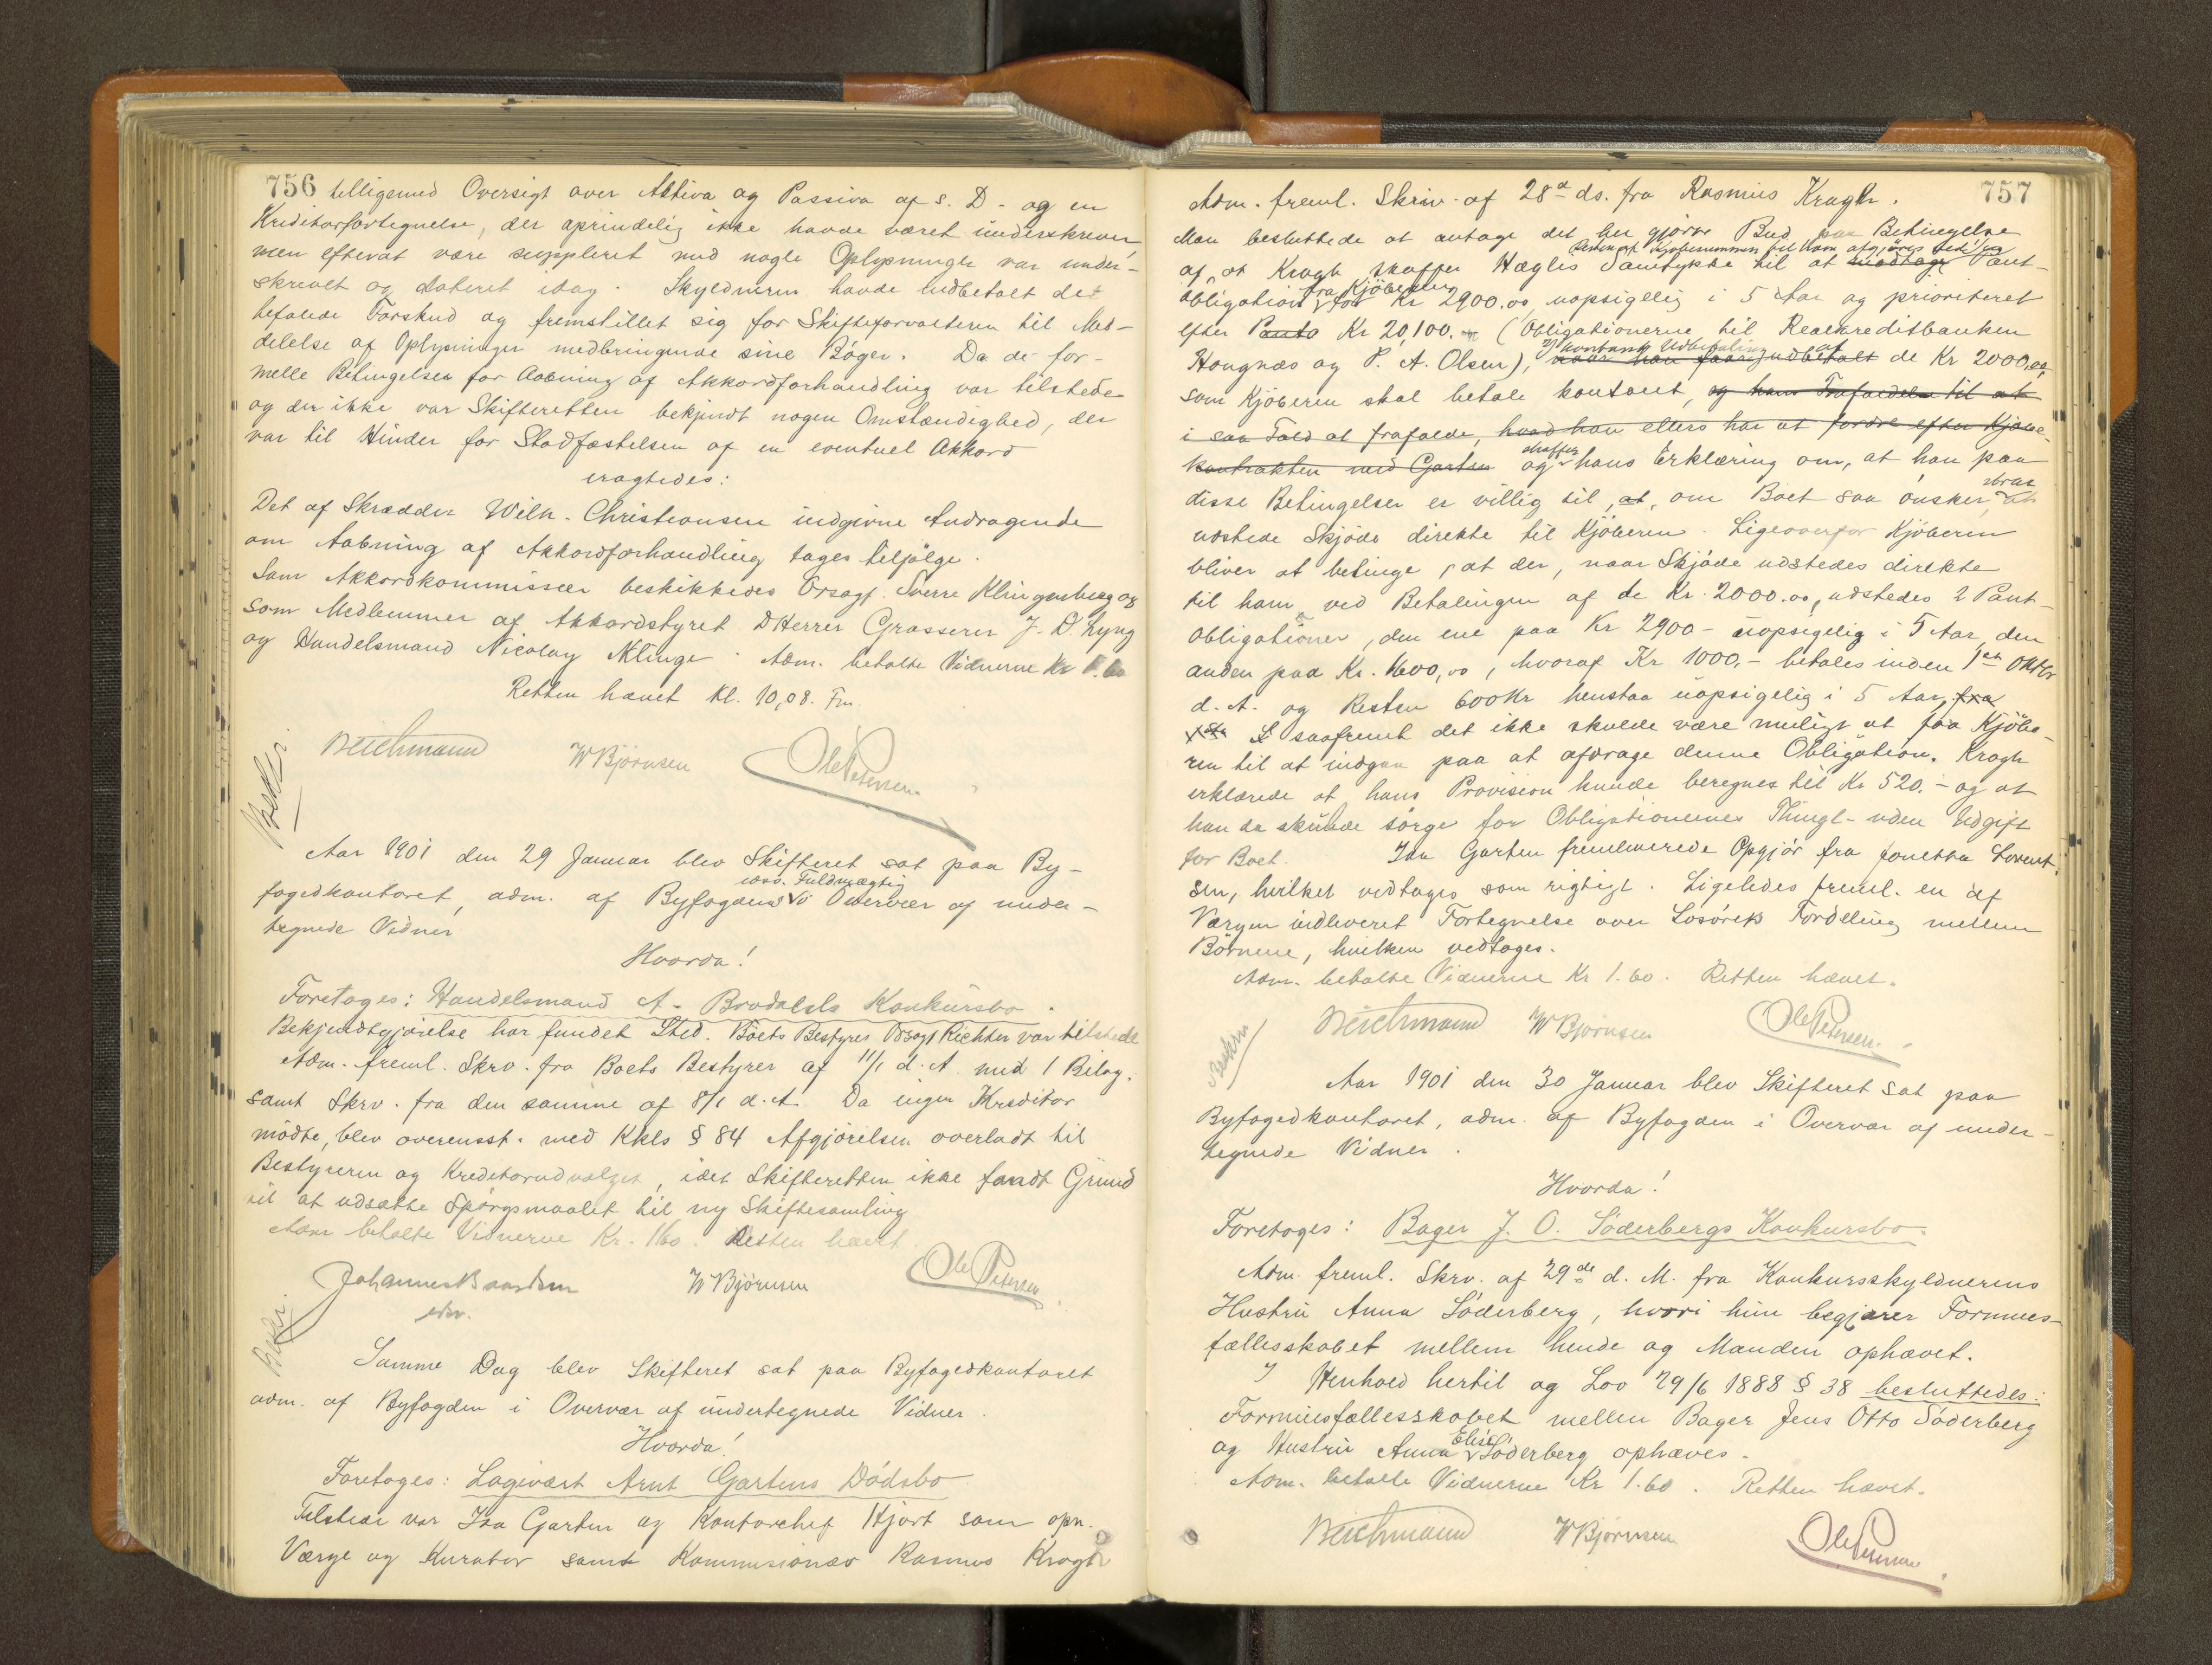 756 tilligemed Oversigt over Aktiva og Passiva af s. D. og en
Kreditorfortegnelse, der oprindelig ikke havde været underskreven,
men efterat være suppleret med nogle Oplysninger var under-
skrevet og dateret idag. Skyldneren havde indbetalt det
befalede Forskud og fremstillet sig for Skifteforvalteren til Med-
delelse af Oplysninger medbringende sine Bøger. Da de for-
melle Betingelser for Aabning af Akkordforhandling var tilstede
og der ikke var Skifteretten bekjendt nogen Omstændighed, der
var til Hinder for Stadfæstelsen af en eventuel Akkord
eragtedes:
Det af Skrædder Wilh. Christiansen indgivne Andragende
om Aabning af Akkordforhandling tages tilfølge.
Som Akkordkommissær beskikkedes Orsagf. Sverre Klingenberg og
som Medlemmer af Akkordstyret DHerrer Grosserer J. D. Lyng
og Handelsmand Nicolay Klinge. Adm. betalte Vidnerne Kr
Retten hævet Kl. 10,08. Fm.
Beichmann W Bjørnsen Ole Petersen
Beskr.
Aar 1901 den 29 Januar blev Skifteret sat paa By-
edsv. Fuldmægtig
fogedkontoret, adm. af Byfogdens i Overvær af under-
tegnede Vidner
Hvorda!
Foretoges: Handelsmand A. Brodahls Konkursbo.
Bekjendtgjørelse har fundet Sted. Boets Bestyrer Orsagf Richter var tilstede
Adm. freml. Skrv. fra Boets Bestyrer af 11/1 d. A. med 1 Bilag.
samt Skrv. fra den samme af 8/1 d. A. Da ingen Kreditor
mødte, blev overensst. med Kkls § 84 Afgjørelsen overladt til
Bestyreren og Kreditorudvalget, idet Skifteretten ikke fandt Grund
til at udsætte Spørgsmaalet til ny Skiftesamling
Adm betalte Vidnerne Kr. 1.60. Retten hævet.
Johannes W Bjørnsen Ole Petersen
edsv.
Beskr.
Samme Dag blev Skifteret sat paa Byfogedkontoret
adm. af Byfogden i Overvær af undertegnede Vidner.
Hvorda!
Foretoges: Logivært Arnt Gartens Dødsbo
Tilstede var Ida Garten og Kontorchef Hjort som opn.
Værge og Kurator samt Kommissionær Rasmus Krogh
757
Adm. freml. Skriv. af 28de ds. fra Rasmus Krogh.
Man besluttede at antage det her gjorte Bud paa Betingelse
af, at Krogh skaffer Hægles Samtykke til at modtage Pant-
fra Kjøberen
obligation for Kr 2900.00 uopsigelig i 5 Aar og prioriteret
efter Panto Kr 20,100. (Obligationerne til Realkreditbanken
kontant Udbetaling af
Hougnæs og P. A. Olsen), naar han faar udbetalt de Kr 2000,00,
som Kjøberen skal betale kontant, og hans Frafaldelse til at
i saa Fald at frafalde, hvad han ellers har at fordre efter Kjøbe-
skaffer
kontrakten med Garten og hans Erklæring om, at han paa
strax
disse Betingelser er villig til, at, om Boet saa ønsker, at
udstede Skjøde direkte til Kjøberen. Ligeoverfor Kjøberen
bliver at betinge, at der, naar Skjøde udstedes direkte
til ham ved Betalingen af de Kr. 2000.00, udstedes 2 Pant-
obligationer, den ene paa Kr 2900 - uopsigelig i 5 Aar, den
anden paa Kr. 1600,00, hvoraf Kr 1000,- betales inden 1st Oktbr
d. A. og Resten 600 Kr henstaa uopsigelig i 5 Aar, fra
saafremt det ikke skulde være muligt at faa Kjøbe-
ren til at indgaa paa at afdrage denne Obligation. Krogh
erklærede at hans Provision kunde beregnes til Kr 520.- og at
han da skulde sørge for Obligationernes Thingl. uden Udgift
for Boet. Ida Garten fremleverede Opgjør fra Jonetta Lorent-
sen, hvilket vedtages som rigtigt. Ligeledes freml. en af
Værgen indleveret Fortegnelse over Løsørets Fordeling mellem
Børnene, hvilken vedtoges.
Adm. betalte Vidnerne Kr 1.60. Retten hævet.
Beichmann W Bjørnsen Ole Petersen.
Beskr
Aar 1901 den 30 Januar blev Skifteret sat paa
Byfogedkontoret, adm. af Byfogden i Overvær af under-
tegnede Vidner.
Hvorda!
Foretoges: Bager J. O. Söderbergs Konkursbo.
Adm. freml. Skrv. af 29de d. M. fra Konkursskyldnerens
Hustru Anna Söderberg, hvori hun begjærer Formues-
fællesskabet mellem hende og Manden ophævet.
I Henhold hertil og Lov 29/6 1888 § 38 besluttedes:
Formuesfællesskabet mellem Bager Jens Otto Söderberg
Elise
og Hustru Anna Söderberg ophæves.
Adm. betalte Vidnerne Kr 1.60. Retten hævet.
Beichmann W Bjørnsen Ole Petersen